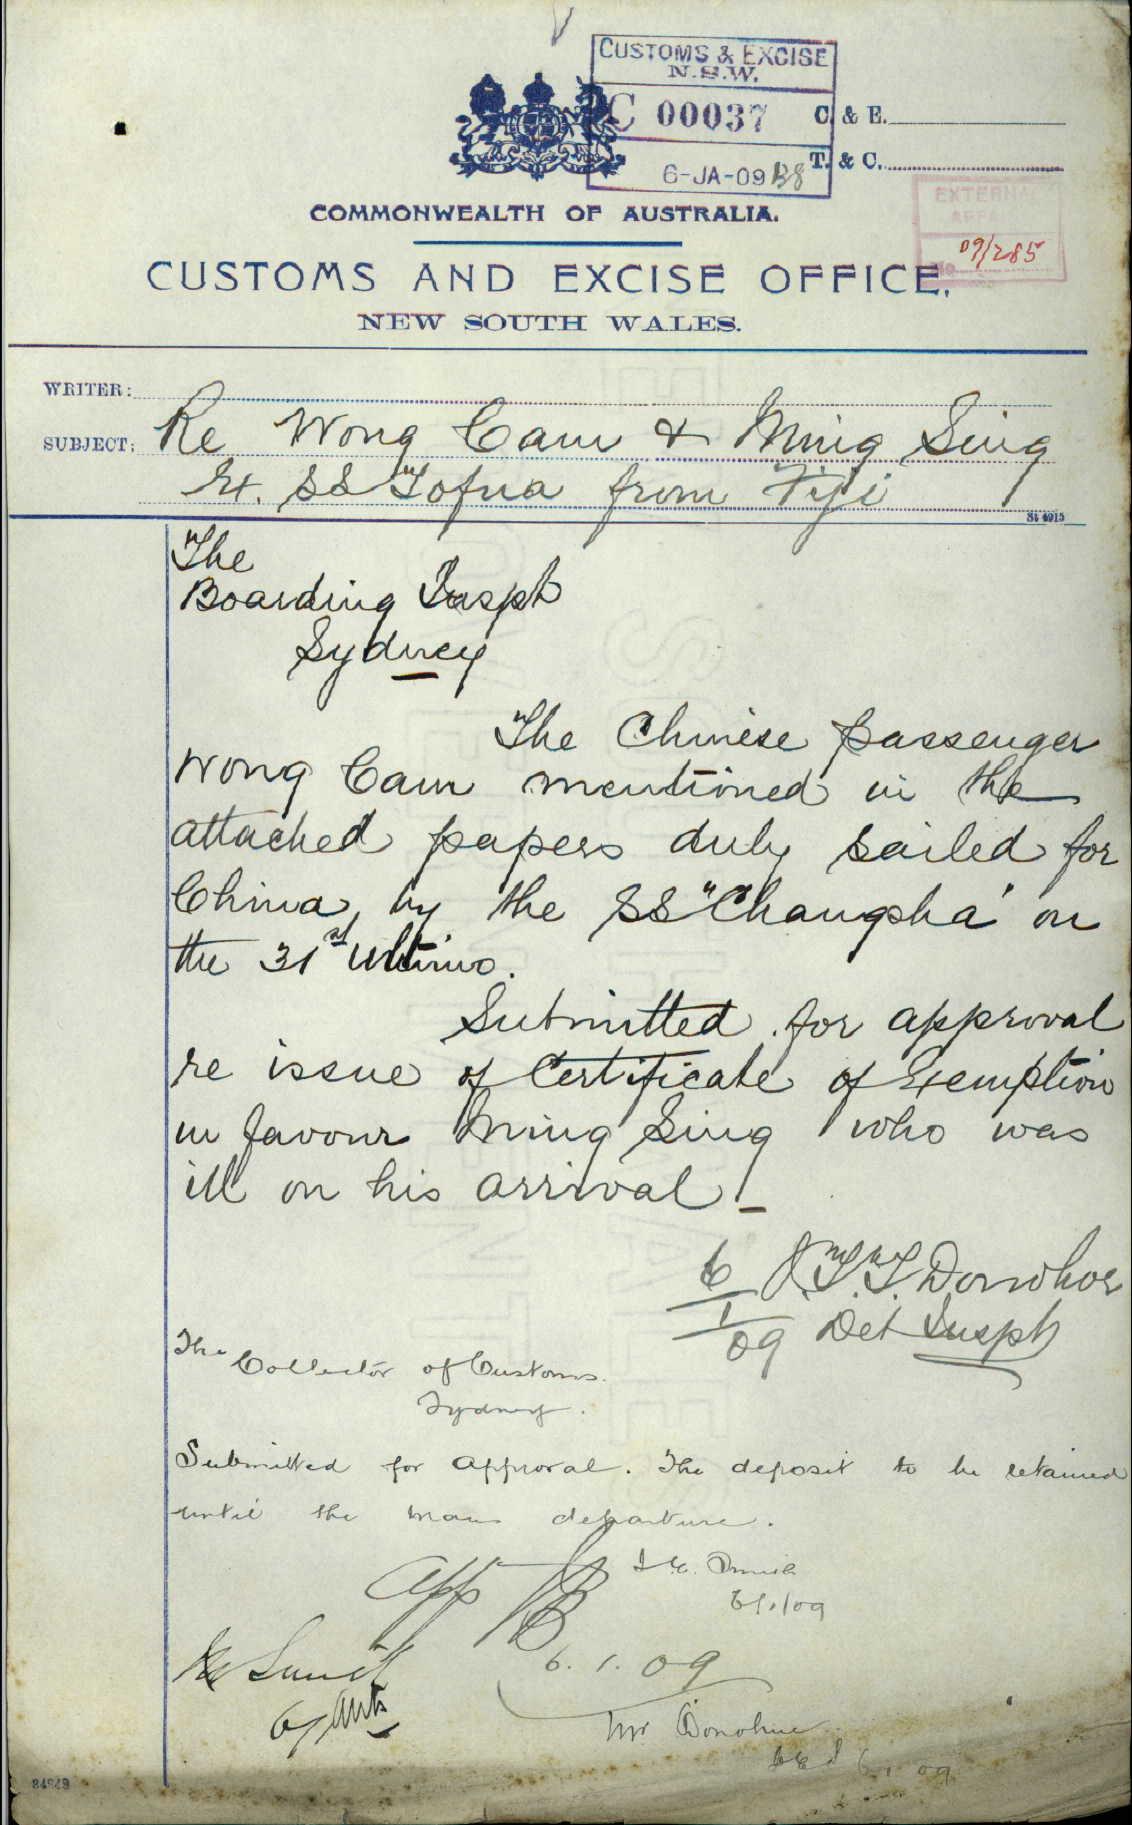 CUSTOMS & EXCISE
N.S.W.
C 00037
6-JA-09
C. & E.
T. & C.
EXTERNAL
AFFAI
No 09/285
COMMONWEALTH OF AUSTRALIA.
CUSTOMS AND EXCISE OFFICE,
NEW SOUTH WALES.
WRITER:
SUBJECT: Re Wong Cam & Ming Sing
Ex. SS Tofua from Fiji
St 4915
The
Boarding Inspr
Sydney
The Chinese passenger
Wong Cam mentioned in the
attached papers duly sailed for
China, by the SS "Changsha" on
the 31st Ultimo.
Submitted for approval
re issue of Certificate of Exemption
in favour Ming Sing who was
ill on his arrival
6/1/09 J.T.T. Donohoe
Det Inspr
The Collector of Customs.
Sydney.
Submitted for approval. The deposit to be retained
until the mans departure.
6/1/09
App
6.1.09
Mr Donohue
84849